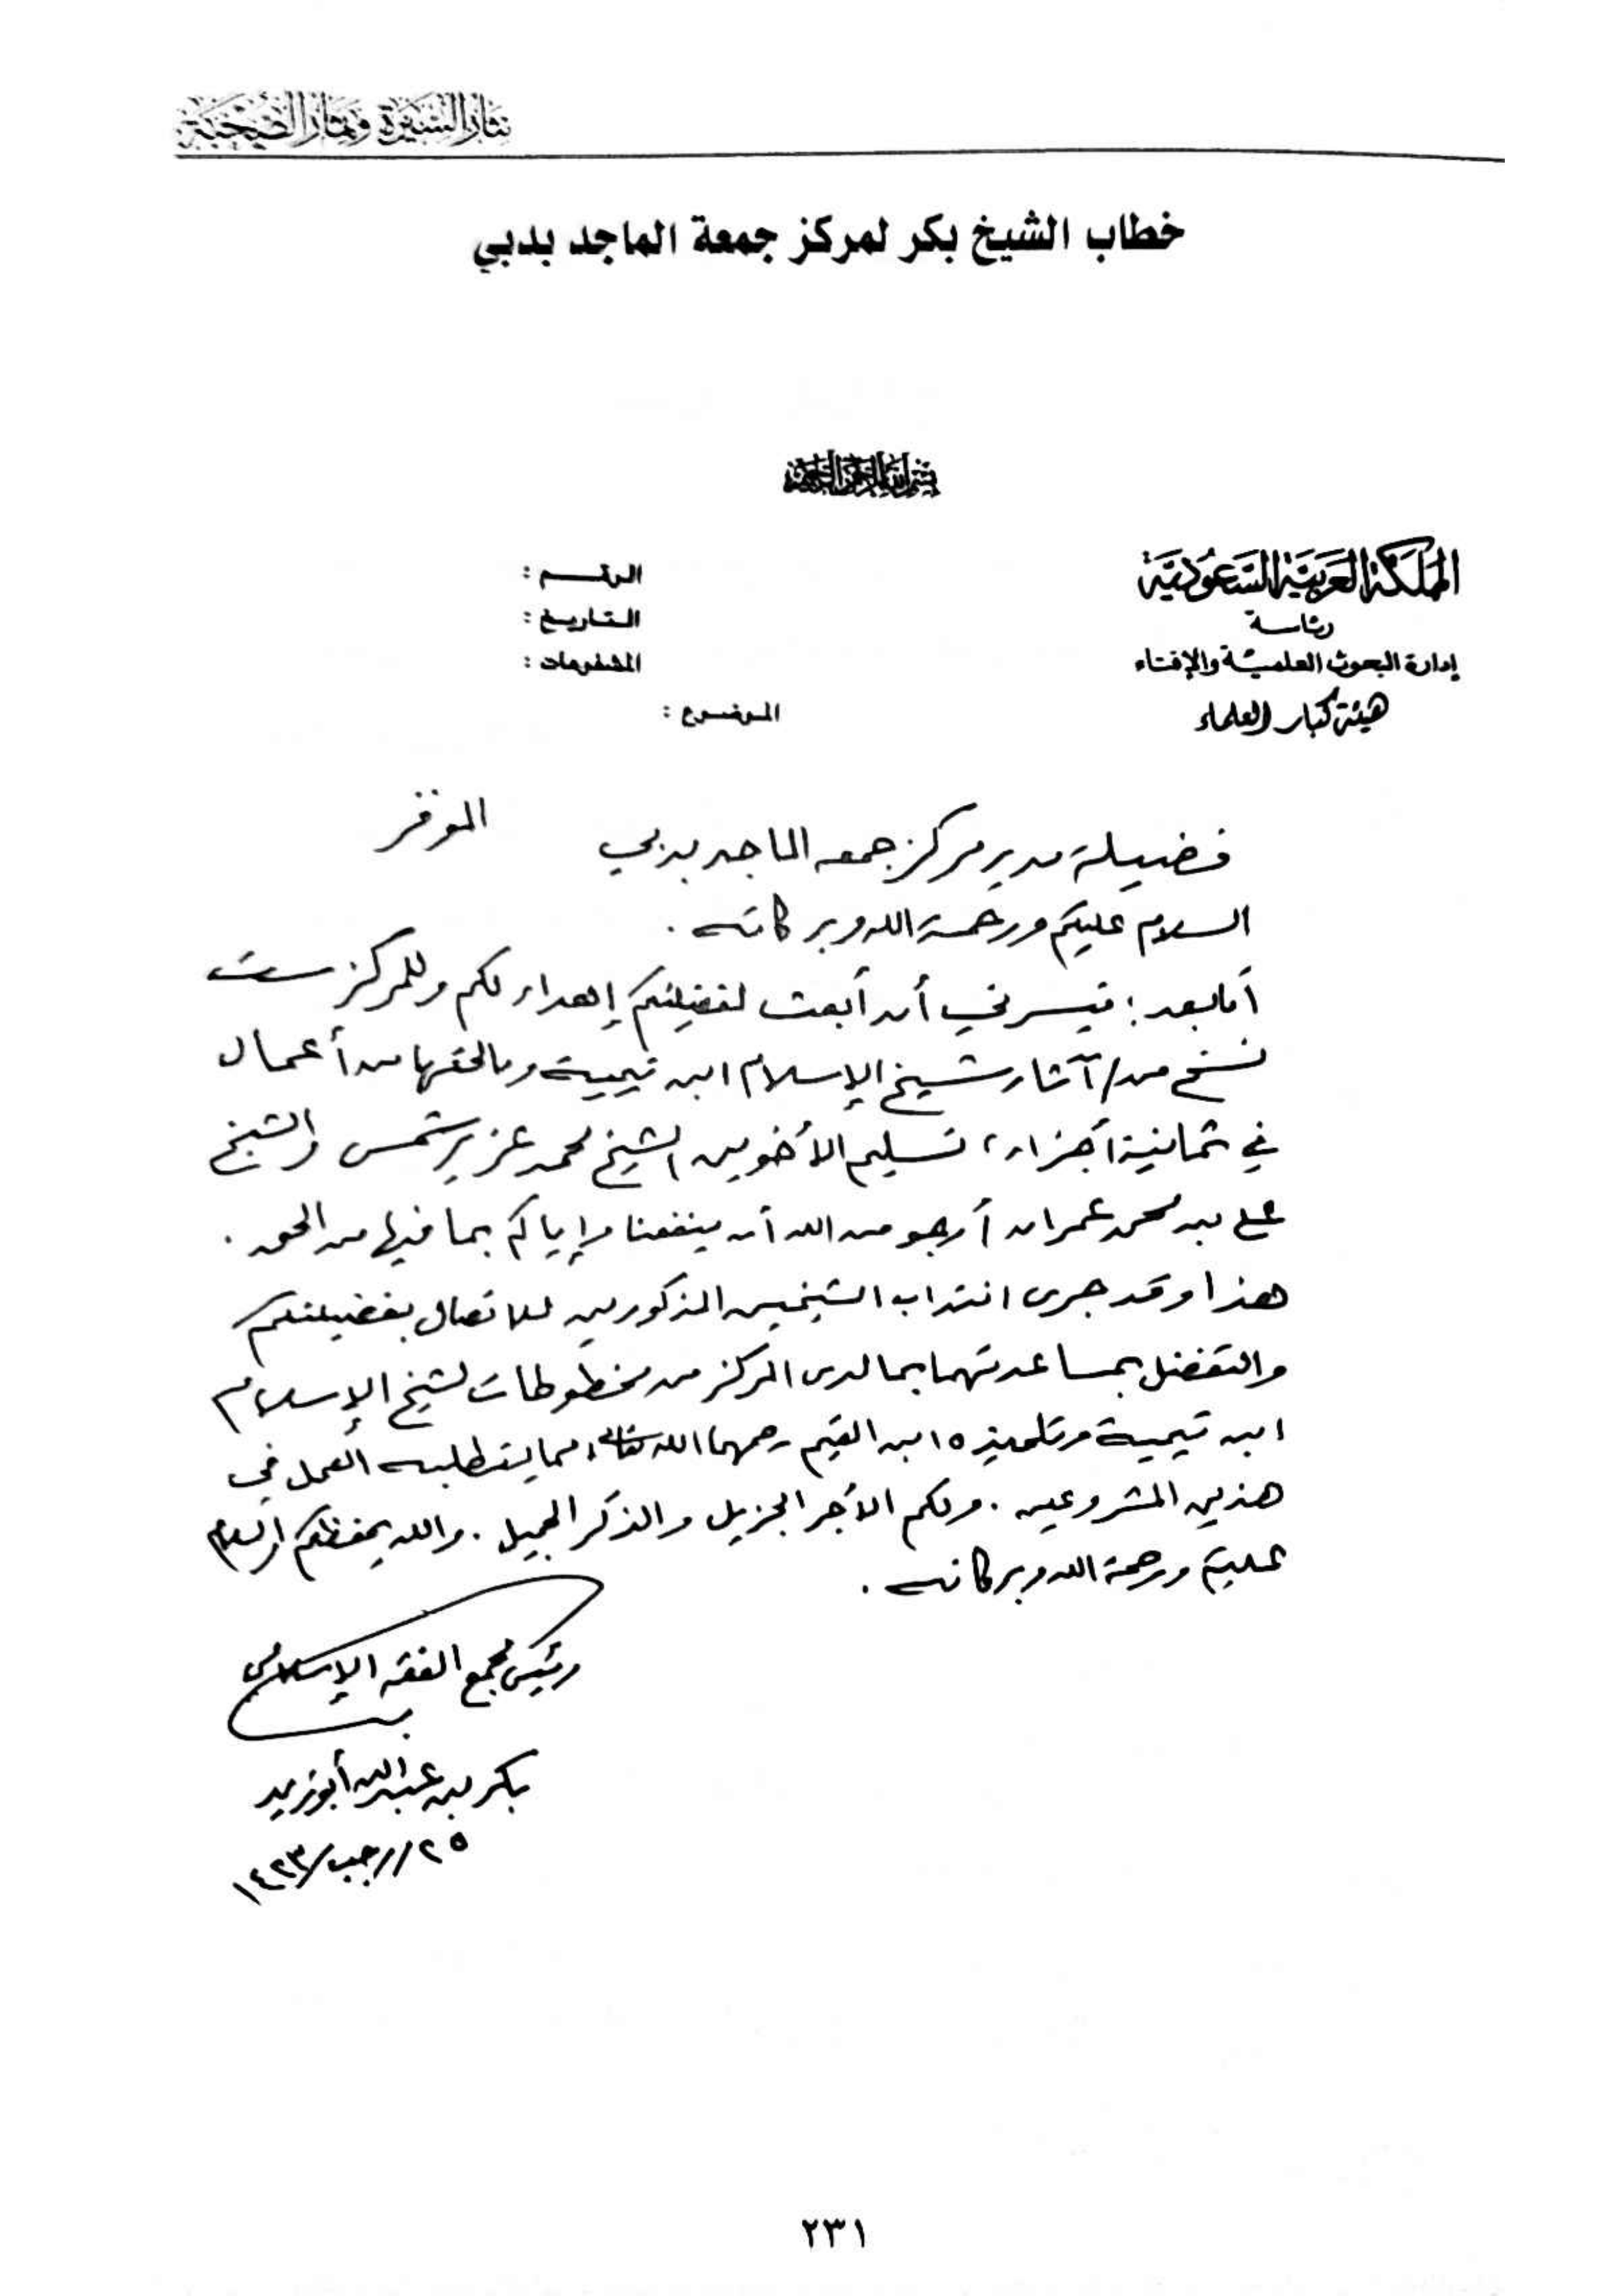 نثار السيرة وثمار الصحبة
خطاب الشيخ بكر لمركز جمعة الماجد بدبي
بسم الله الرحمن الرحيم
المملكة العربية السعودية
رئاسة
إدارة البحوث العلمية والإفتاء
هيئة كبار العلماء
الرقم :
التاريخ :
المشفوعات :
الموضوع :
فضيلة مدير مركز جمعه الماجد بدبي الموقر
السلام عليكم ورحمة الله وبركاته .
أما بعد : فيسرني أن أبعث لفضيلتكم إهداء لكم وللمركز ست
نسخ من / آثار شيخ الإسلام ابن تيمية وما لحقها من أعمال
في ثمانية أجزاء ، تسليم الأخوين الشيخ محمد عزير شمس والشيخ
علي بن محمد عمران أرجو من الله أن ينفعنا وإياكم بما فيها من الحق .
هذا وقد جرى انتداب الشيخين المذكورين للاتصال بفضيلتكم
والتفضل بمساعدتهما بما لدى المركز من مخطوطات لشيخ الإسلام
ابن تيمية وتلميذه ابن القيم رحمهما الله تعالى مما يتطلبه العمل في
هذين المشروعين . ولكم الأجر الجزيل والذكر الجميل . والله يحفظكم والسلام
عليكم ورحمة الله وبركاته .
رئيس مجمع الفقه الإسلامي
بكر بن عبدالله أبو زيد
٢٥/رجب/١٤٢٣
٢٣١